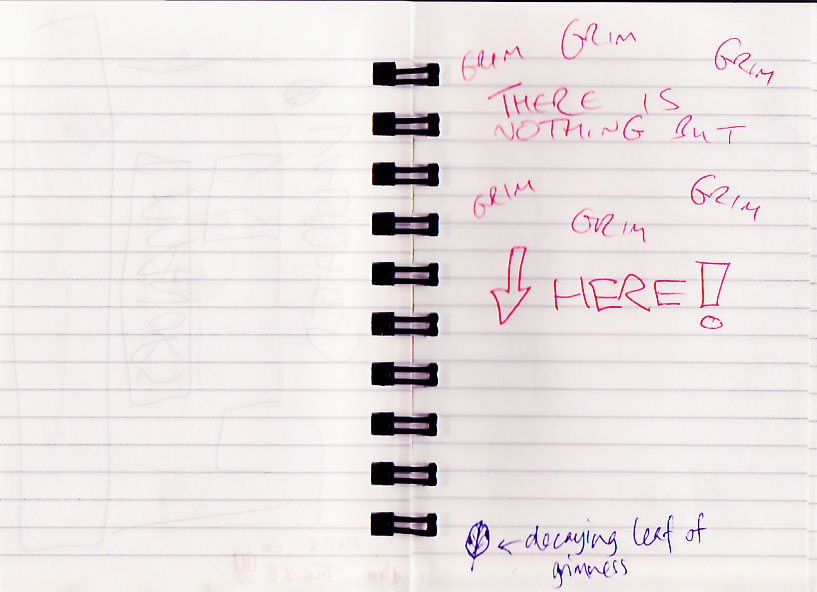 GRIM GRIM GRIM
THERE IS
NOTHING BUT
GRIM GRIM GRIM
HERE!
decaying leaf of
grimness